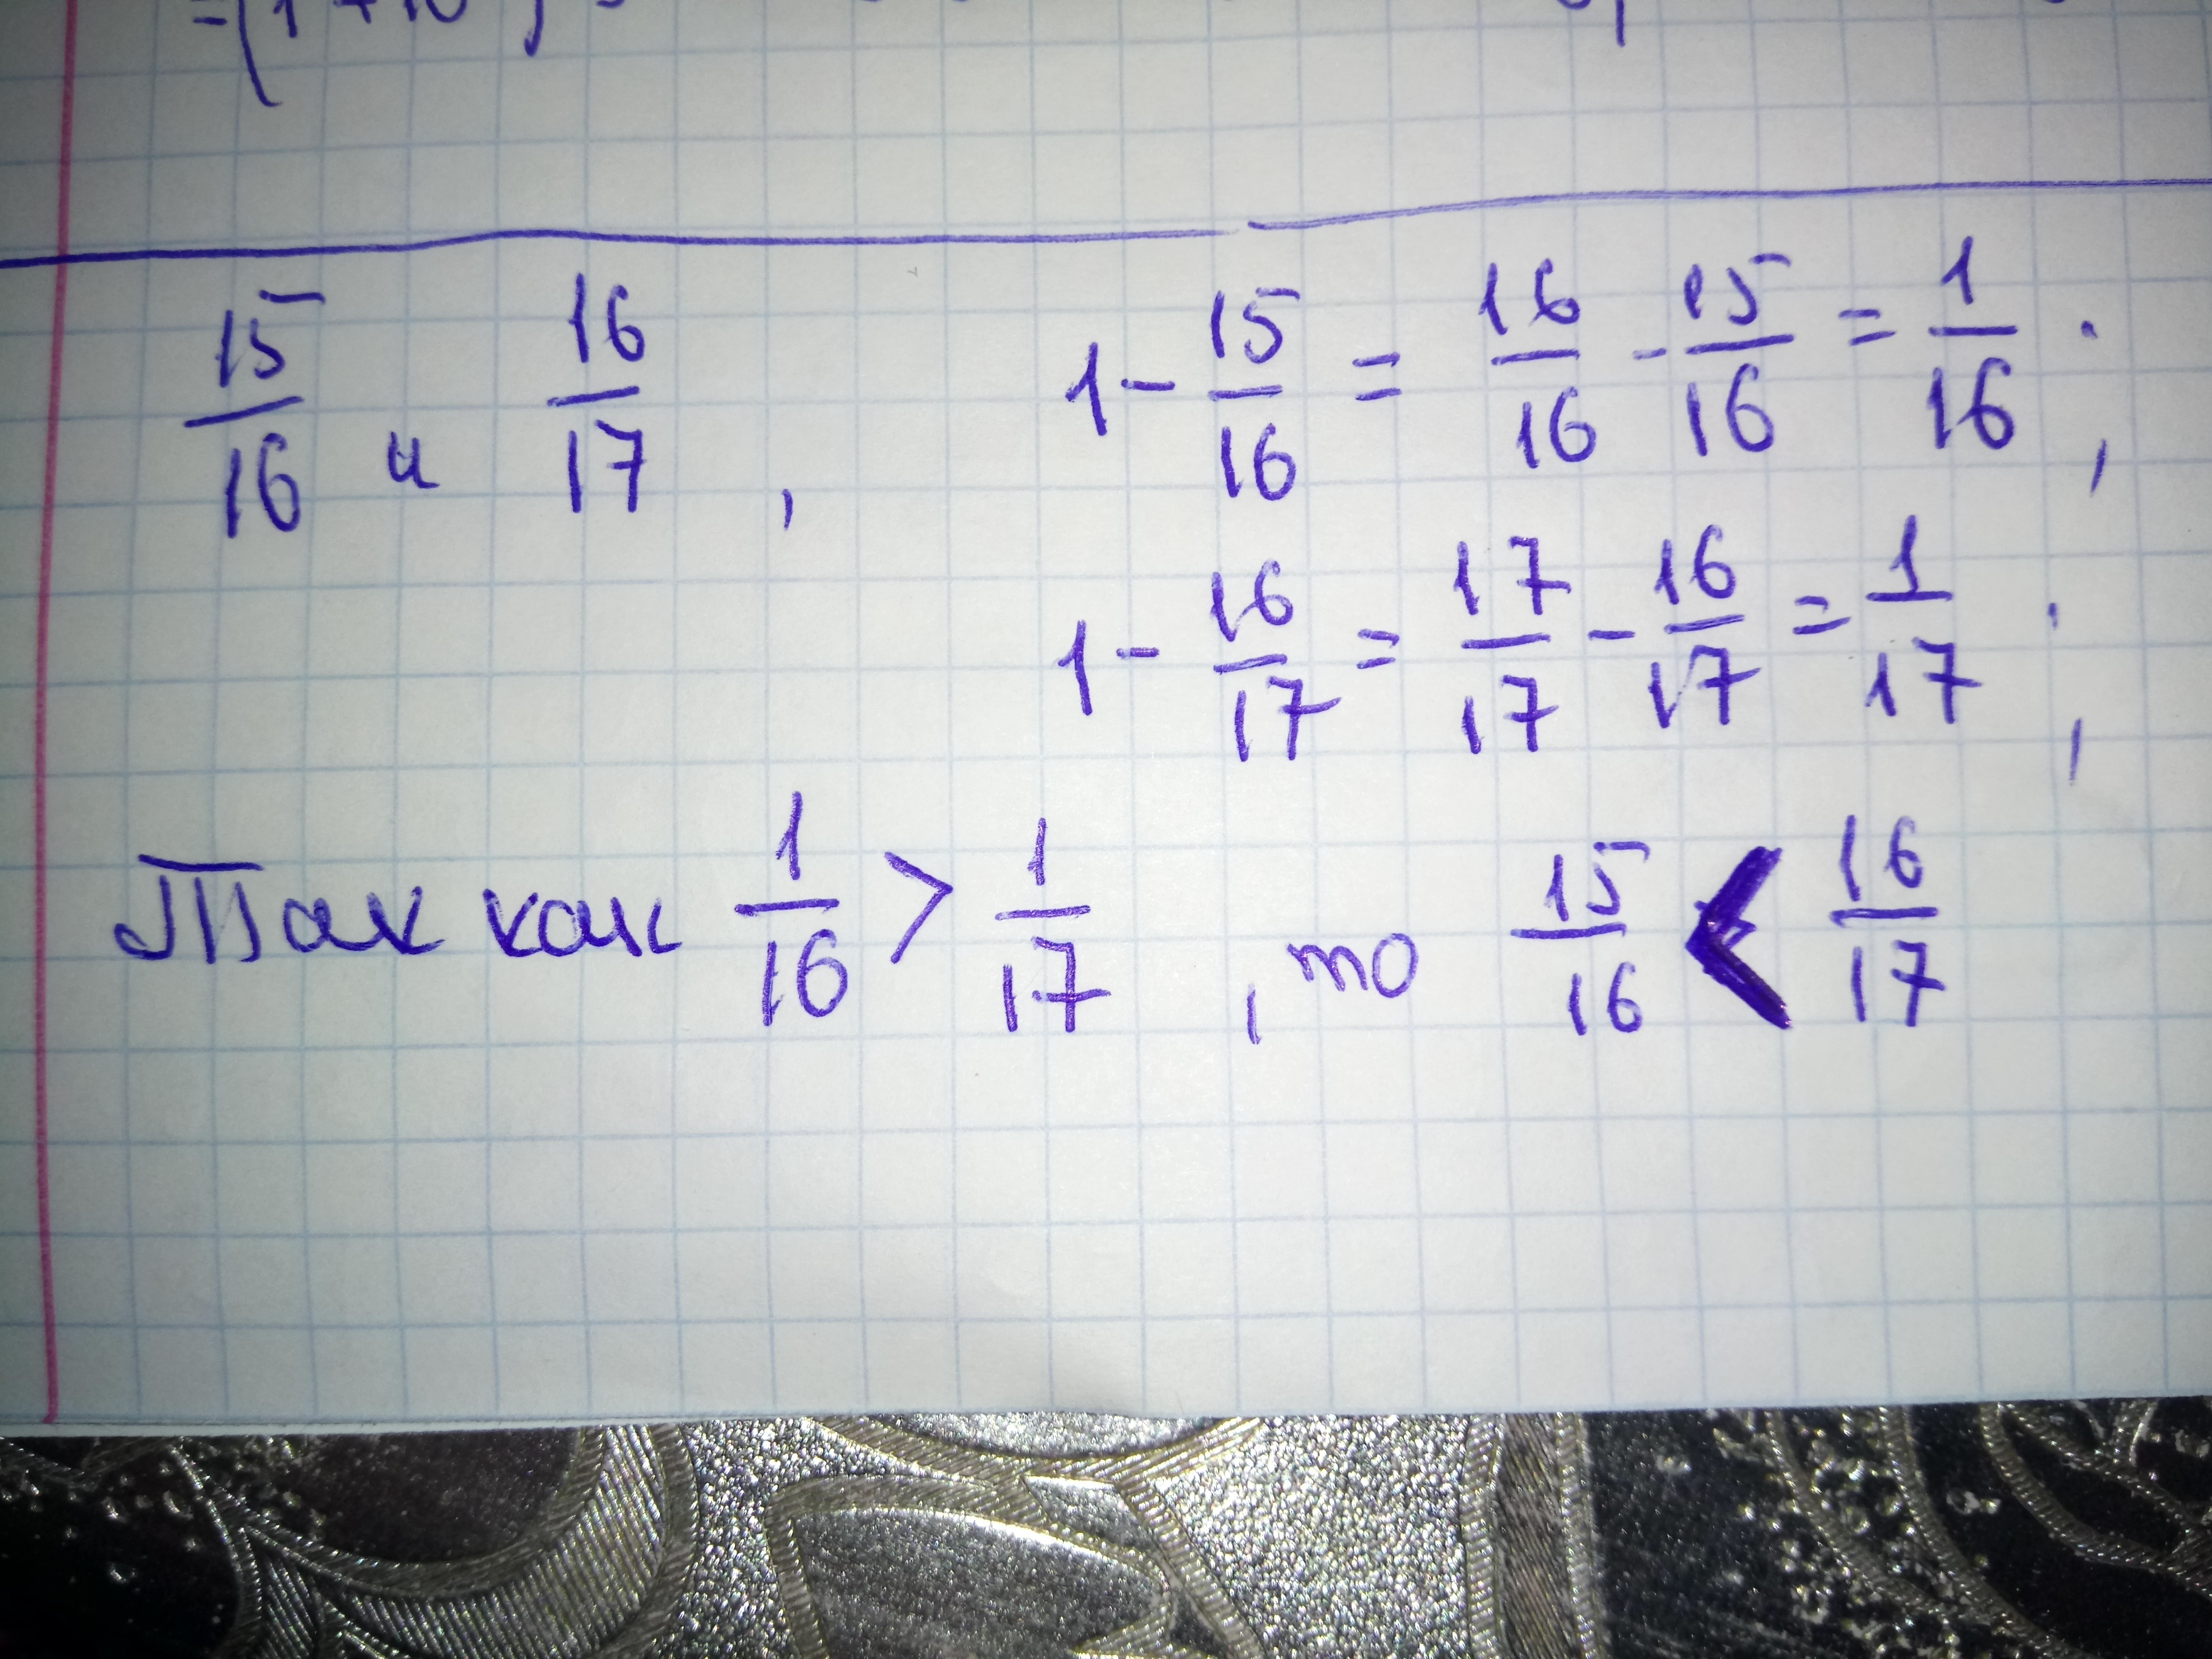 15/16 и 16/17, 1 - 15/16 = 16/16 - 15/16 = 1/16;
1 - 16/17 = 17/17 - 16/17 = 1/17;
Так как 1/16 > 1/17, то 15/16 < 16/17